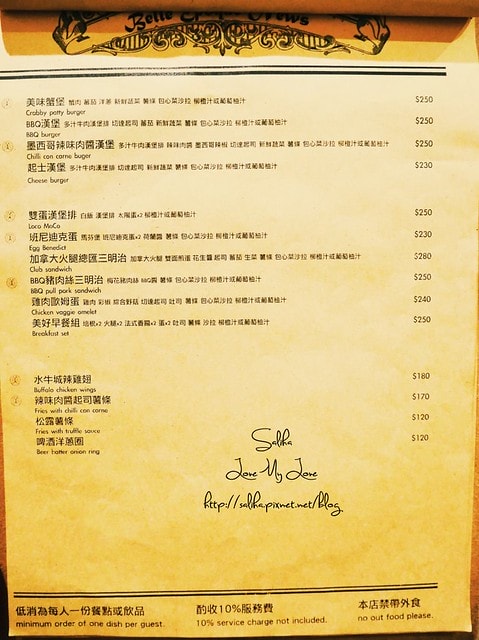 美味蟹堡 蟹肉 蕃茄 洋蔥 新鮮蔬菜 薯條 包心菜沙拉 柳橙汁或葡萄柚汁 $250
Crabby patty burger
BBQ漢堡 多汁牛肉漢堡排 切達起司 蕃茄 新鮮蔬菜 薯條 包心菜沙拉 柳橙汁或葡萄柚汁 $250
BBQ burger
墨西哥辣味肉醬漢堡 多汁牛肉漢堡排 辣味肉醬 墨西哥辣椒 切達起司 新鮮蔬菜 薯條 包心菜沙拉 柳橙汁或葡萄柚汁 $250
Chilli con carne buger
起士漢堡 多汁牛肉漢堡排 切達起司 新鮮蔬菜 薯條 包心菜沙拉 柳橙汁或葡萄柚汁 $230
Cheese burger
雙蛋漢堡排 白飯 漢堡排 太陽蛋x2 柳橙汁或葡萄柚汁 $250
Loco MoCo
班尼迪克蛋 馬芬堡 班尼迪克蛋x2 荷蘭醬 薯條 包心菜沙拉 柳橙汁或葡萄柚汁 $230
Egg Benedict
加拿大火腿總匯三明治 加拿大火腿 雙面煎蛋 花生醬 起司 蕃茄 生菜 薯條 包心菜沙拉 柳橙汁或葡萄柚汁 $280
Club sandwich
BBQ豬肉絲三明治 梅花豬肉絲 BBQ醬 薯條 包心菜沙拉 柳橙汁或葡萄柚汁 $250
BBQ pull pork sandwich
雞肉歐姆蛋 雞肉 彩椒 綜合野菇 切達起司 吐司 薯條 包心菜沙拉 柳橙汁或葡萄柚汁 $240
Chicken vaggie omelet
美好早餐組 培根x2 火腿x2 法式香腸x2 蛋x2 吐司 薯條 沙拉 柳橙汁或葡萄柚汁 $250
Breakfast set
水牛城辣雞翅 $180
Buffalo chicken wings
辣味肉醬起司薯條 $170
Fries with chilli con carne
松露薯條 $120
Fries with truffle sauce
啤酒洋蔥圈 $120
Beer batter onion ring
Saliha
Love My Love
http://saliha.pixnet.net/blog
低消為每人一份餐點或飲品 酌收10%服務費 本店禁帶外食
minimum order of one dish per guest. 10% service charge not included. no out food please.